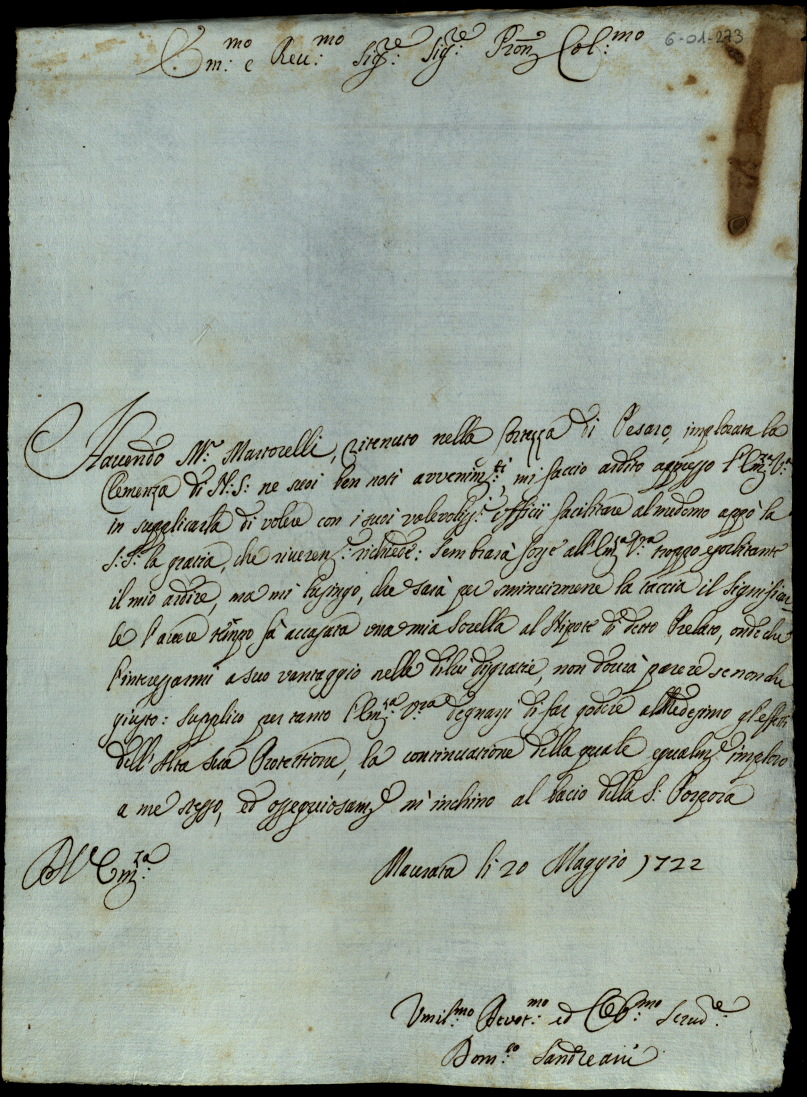 6-01-273
Em:mo e Reu:mo Sig:re Sig:re Pron Col:mo
Hauendo M.r Martorelli, ritenuto nella fortezza di Pesaro, implorata la
Clemenza di N: S: ne suoi ben noti avvenim:ti, mi faccio ardito appresso l'Em:za V:a
in supplicarla di volere con i suoi valevoliss: Offitii facilitare al medemo appò la
S: S:a la gratia, che riueren:e richiede: Sembrarà forse all'Em:za V:ra troppo esorbitante
il mio ardire, ma mi lusingo, che sarà per sminuirmene la taccia il significar
le l'avere tempo fà accasata una mia Sorella al Nipote di detto Prelato, onde che
l'interessarmi a suo vantaggio nelle di lui disgratie, non dourà parere se non che
giusto: supplico per tanto l'Em:za V:ra degnarsi di far godere al Medesimo gl'effetti
dell'Alta Sua Protettione, la continuatione della quale egualm:e imploro
a me stesso, ed ossequiosam:e m'inchino al bacio della S: Porpora
D V Em:za
Macerata li 20 Maggio 1722
Vmil:mo Deuot:mo ed Obb:mo Serud:re
Dom:co Sandreani